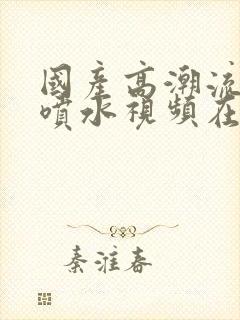 國産高潮流
噴水視頻在
秦淮春